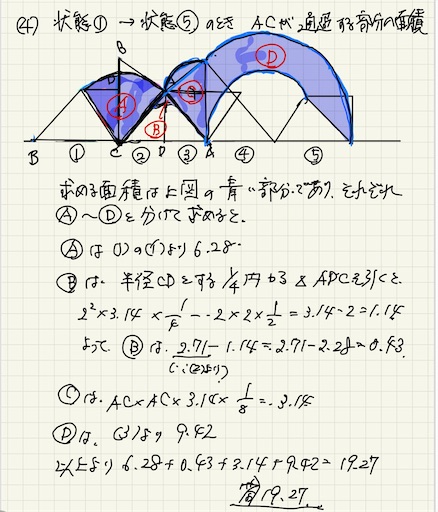 (4) 状態① → 状態⑤ のとき ACが通過する部分の面積
B
D
A
Ⓐ
Ⓑ
Ⓒ
Ⓓ
B ① C ② D ③ A ④ ⑤
求める面積は上図の青い部分であり、それぞれ
Ⓐ〜Ⓓと分けて求めると、
Ⓐは(1)の(1)より 6.28
Ⓑは、半径CDとする1/4円から△ADCを引くと、
2²×3.14×1/4 - 2×2×1/2 = 3.14-2=1.14
よって Ⓑは、2.71-1.14=2.71-2.28=0.43
Ⓒは、AC×AC×3.14×1/8=3.14
Ⓓは、(3)より 9.42
以上より 6.28+0.43+3.14+9.42=19.27
答 19.27